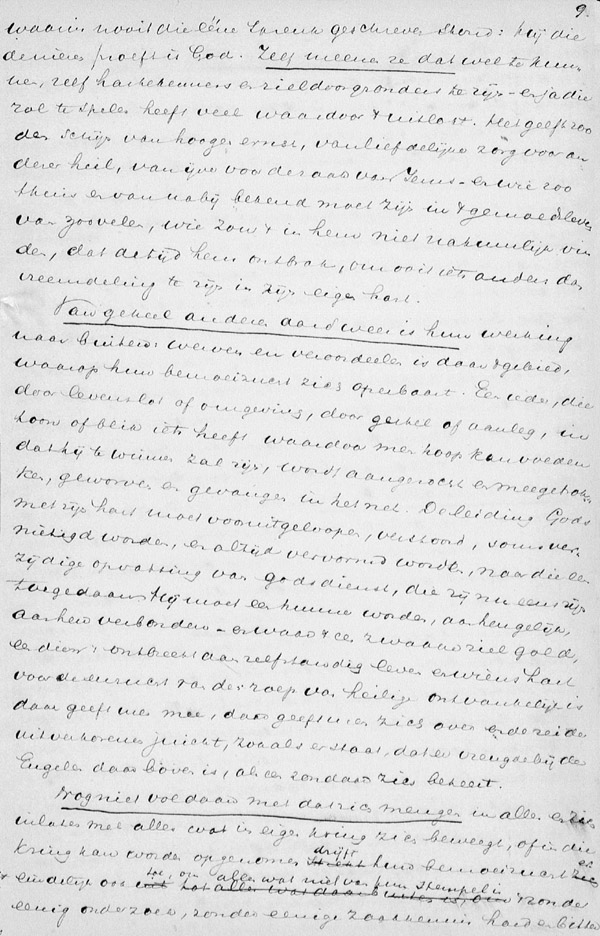 9.
waarin nooit die ééne Spreuk geschreven stond: Hij die
de nieren proeft is God. Zelf meenen ze dat wel te kun-
nen, zelf hartekenners en zieldoorgronders te zijn - en ja die
rol te spelen heeft veel waardoor 't uitlokt. Het geeft zoo
den schijn van hooger ernst, van liefdelijke zorg voor an-
derer heil, van ijver voor de zaak van Jezus - en wie zoo
thuis en van nabij bekend moet zijn in 't gemoedsleven
van zoovelen, wie zou 't in hem niet natuurlijk vin-
den, dat de tijd hem ontbrak, om ooit iets anders dan
vreemdeling te zijn in zijn eigen hart.
Van geheel anderen aard weer is hun werking
naar buiten: werven en veroordeelen is daar 't gebied,
waarop hun bemoeizucht zich openbaart. Een ieder, die
door levenslot of omgeving, door gestel of aanleg, in
toon of blik iets heeft waardoor men hoop kan voeden
dat hij te winnen zal zijn, wordt aangezocht en meegetrok-
ken, geworven en gevangen in het net. De leiding Gods
met zijn hart moet vooruitgeloopen, verstoord, soms ver-
nietigd worden, en altijd vervormd worden, naar die een-
zijdige opvatting van godsdienst, die zij nu eens zijn
toegedaan. Hij moet een hunner worden, aanhankelijk,
aan hen verbonden - en waar 't een zwakke ziel gold,
een dien 't ontbreekt aan zelfstandig leven en wiens hart
voor de roep van heilige ontvankelijk is
daar geeft men mee, daar geeft men zich over en de rei der
uitverkorenen juicht, zooals er staat, dat er vreugde bij de
Engelen daarboven is, als een zondaar zich bekeert.
Nog niet voldaan met dat zich mengen in alles en zich
inlaten met alles wat in eigen kring zich beweegt, of in die
kring kan worden opgenomen drijft hun bemoeizucht zich
eindelijk ook toe, om alles wat niet van hun stempel is zonder
eenig onderzoek, zonder eenige zaakkennis hard en bitter